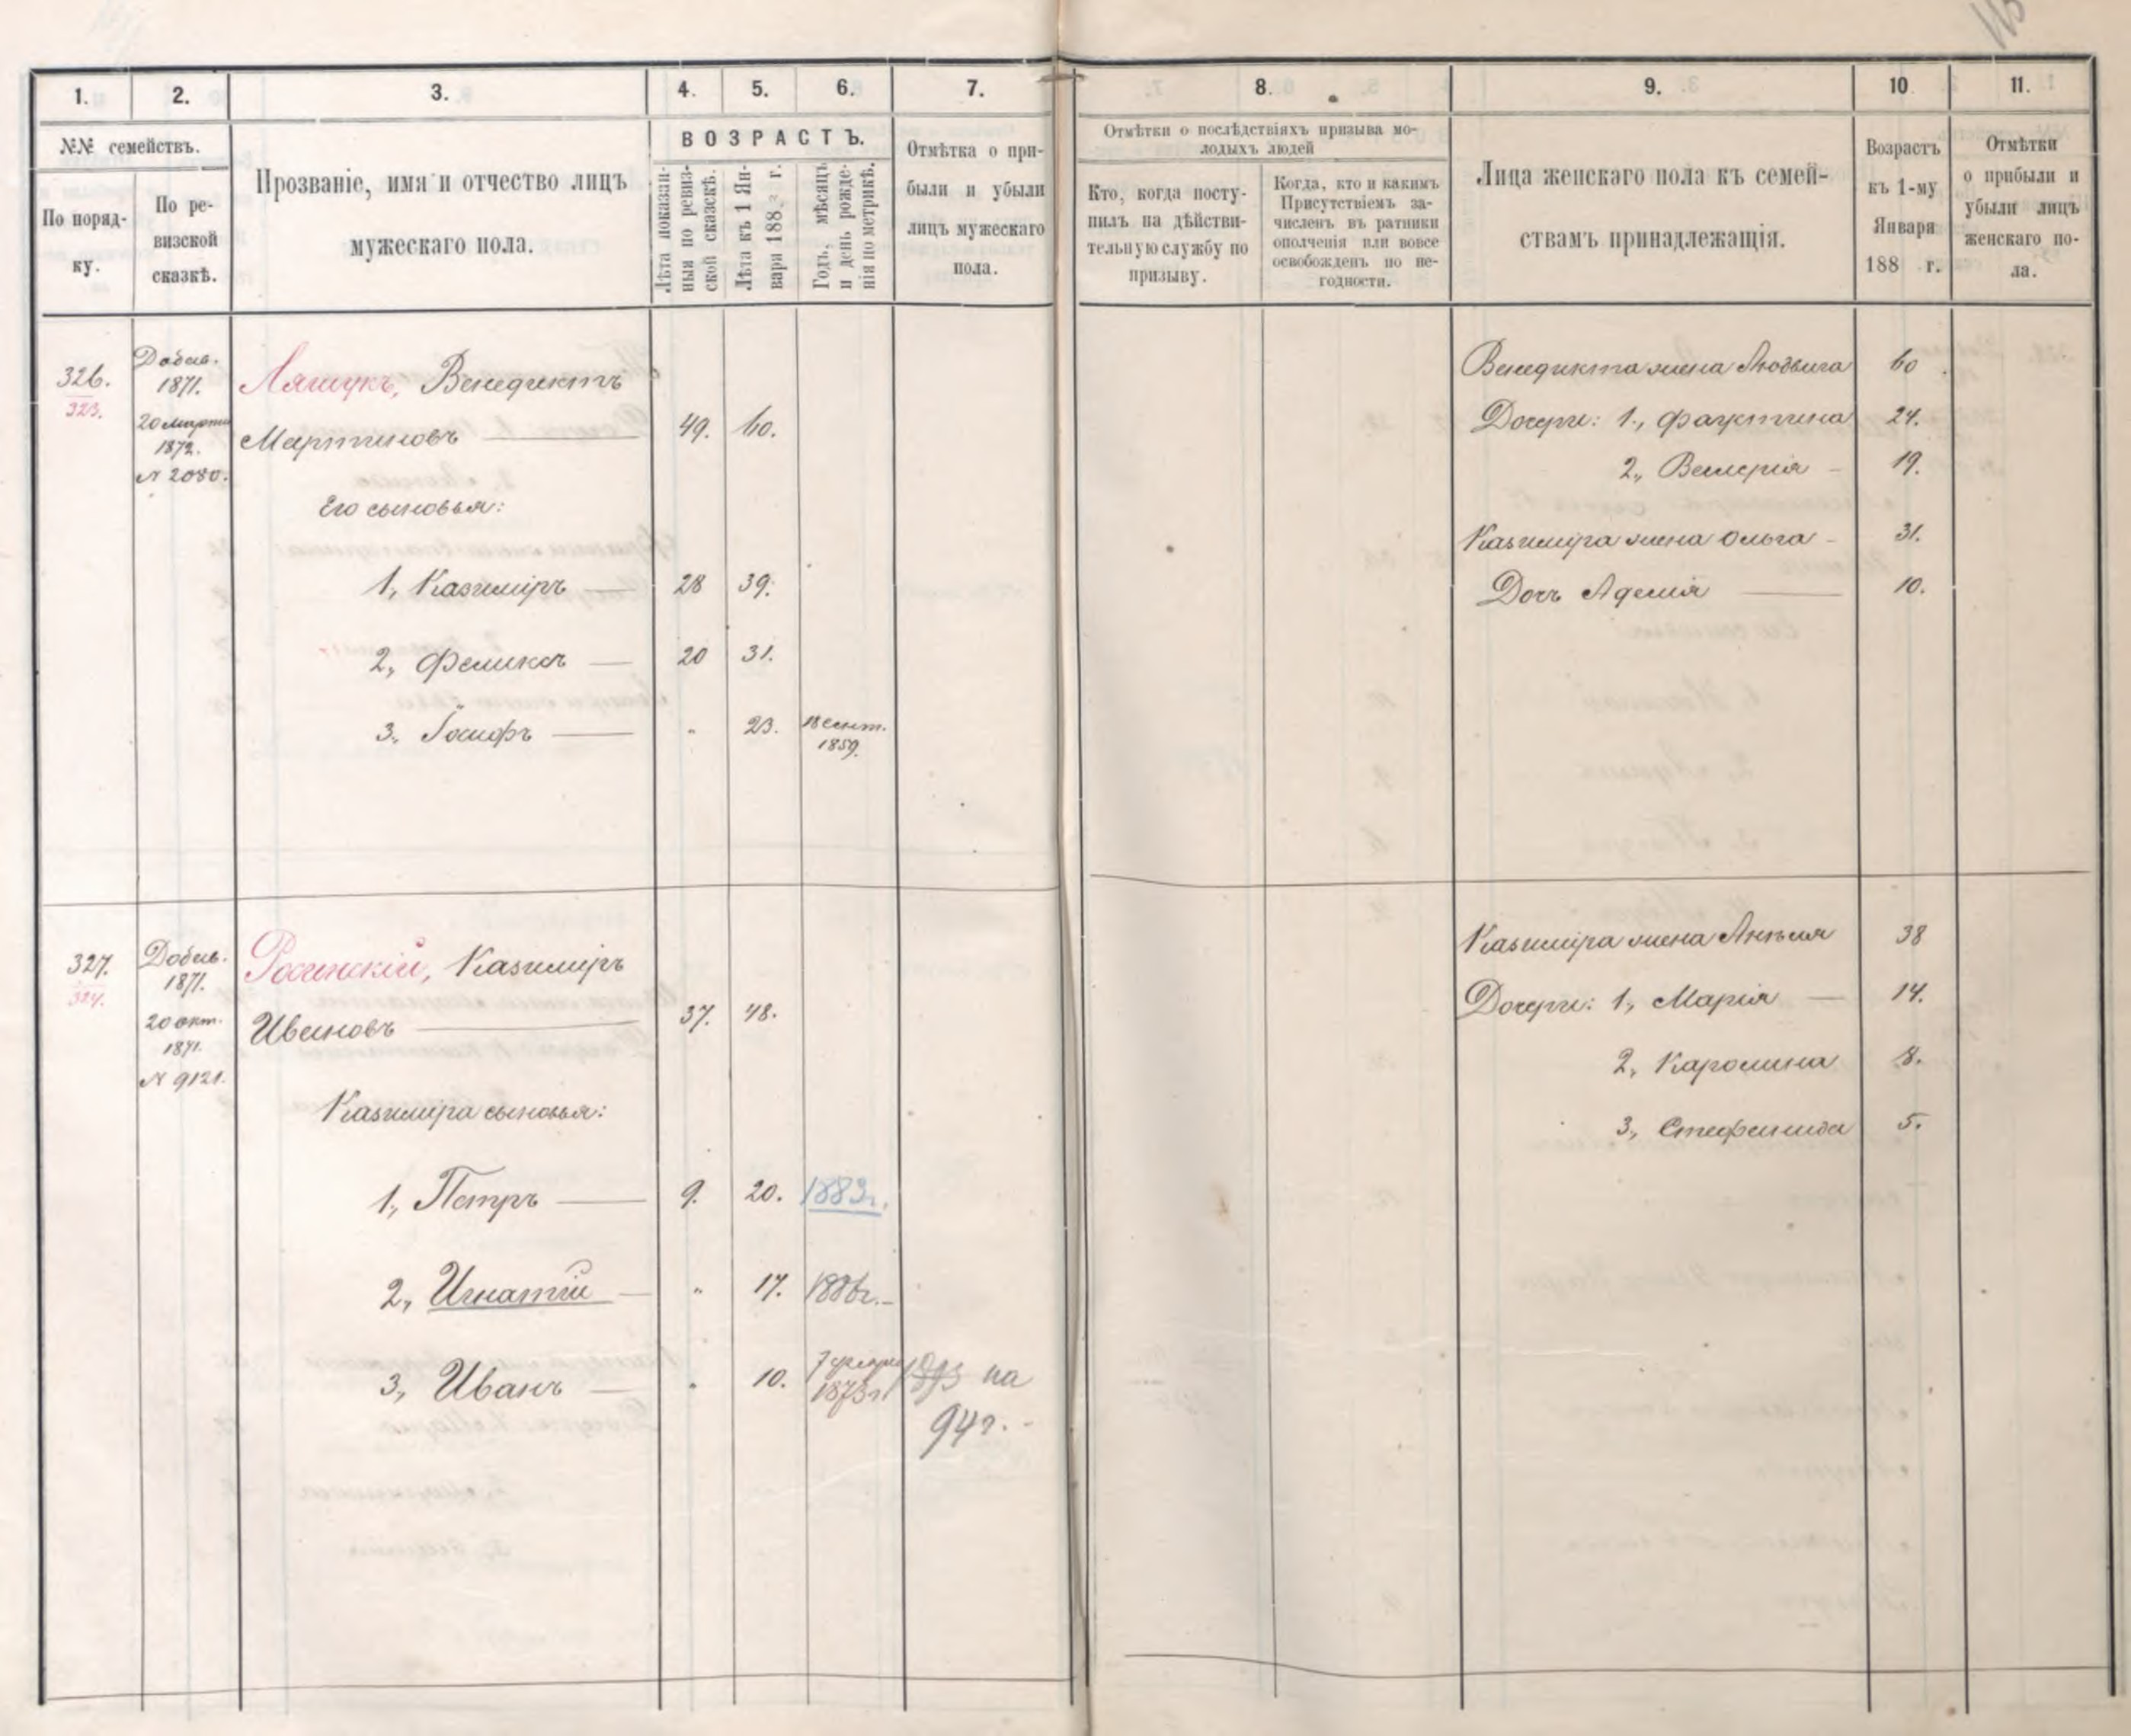 113
1.
2.
3.
4.
5.
6.
7.
8.
9.
10
11.
№№ семействъ.
По поряд-
ку.
По ре-
визской
сказкѣ.
Прозваніе, имя и отчество лицъ
мужескаго пола.
ВОЗРАСТЪ.
Лѣта показан-
ныя по ревиз-
ской сказкѣ.
Лѣта къ 1 Ян-
варя 188 г.
Годъ, мѣсяцъ
и день рожде-
нія по метрикѣ.
Отмѣтка о при-
были и убыли
лицъ мужескаго
пола.
Отмѣтки о послѣдствіяхъ призыва мо-
лодыхъ людей
Кто, когда посту-
пилъ на дѣйстви-
тельную службу по
призыву.
Когда, кто и какимъ
Присутствіемъ за-
численъ въ ратники
ополченія или вовсе
освобожденъ по не-
годности.
Лица женскаго пола къ семей-
ствамъ принадлежащія.
Возрастъ
къ 1-му
Января
188 г.
Отмѣтки
о прибыли и
убыли лицъ
женскаго по-
ла.
326.
323.
Добав.
1871.
20 марта
1872.
№ 2080.
Ляшукъ, Венедиктъ
Мартиновъ
49. 60.
Его сыновья:
1, Казиміръ 28 39.
2, Феликсъ 20 31.
3, Іосифъ " 23. 18 сент.
1859.
Венедикта жена Людвига 60
Дочери: 1, Фаустина 24.
2, Валерія 19.
Казиміра жена Ольга 31.
Дочь Аделія 10.
327.
324.
Добав.
1871.
20 окт.
1871.
№ 9121.
Росинскій, Казиміръ
Ивановъ
37. 48.
Казиміра сыновья:
1, Петръ 9. 20. 1883г.
2, Игнатій " 17. 1886г.
3, Иванъ " 10. 7 февраля
1873г. 1893 на
94г.
Казиміра жена Анѣля 38
Дочери: 1, Марія 14.
2, Каролина 8.
3, Стефанида 5.